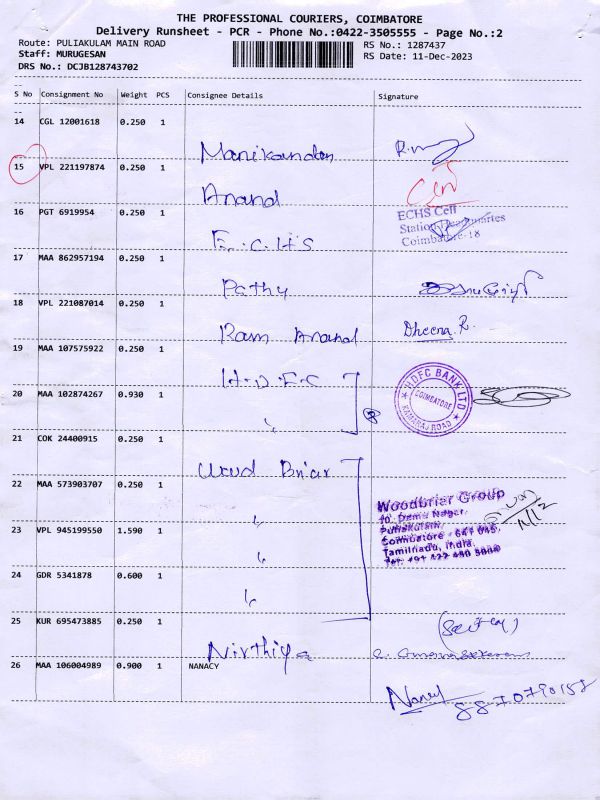 THE PROFESSIONAL COURIERS, COIMBATORE
Delivery Runsheet - PCR - Phone No.:0422-3505555 - Page No.:2
Route: PULIAKULAM MAIN ROAD
RS No.: 1287437
Staff: MURUGESAN
RS Date: 11-Dec-2023
DRS No.: DCJB128743702
S No Consignment No Weight PCS Consignee Details Signature
14 CGL 12001618 0.250 1
Manikandan
15 VPL 221197874 0.250 1
Anand
16 PGT 6919954 0.250 1
ECHS Cell
Station Headquarties
Coimbatore-18
E.C.H.S
17 MAA 862957194 0.250 1
Pathy
18 VPL 221087014 0.250 1
Ram Anand Dheena.R.
19 MAA 107575922 0.250 1
H.D.F.C
20 MAA 102874267 0.930 1
HDFC BANK LTD
COIMBATORE
KAMARAJ ROAD
21 COK 24400915 0.250 1
Wood Briar
22 MAA 573903707 0.250 1
Woodbriar Group
10, Damu Nagar,
Puliakulam,
Coimbatore - 641 045,
Tamilnadu, India.
23 VPL 945199550 1.590 1
24 GDR 5341878 0.600 1
25 KUR 695473885 0.250 1
Nirthiya
26 MAA 106004989 0.900 1 NANACY
Nancy 8870790157